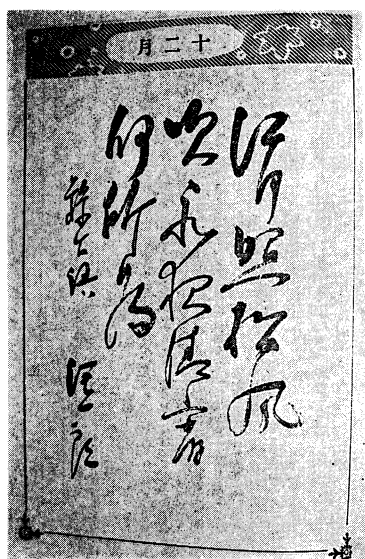 十二月
江月照松風
吹永夜清宵
何所為